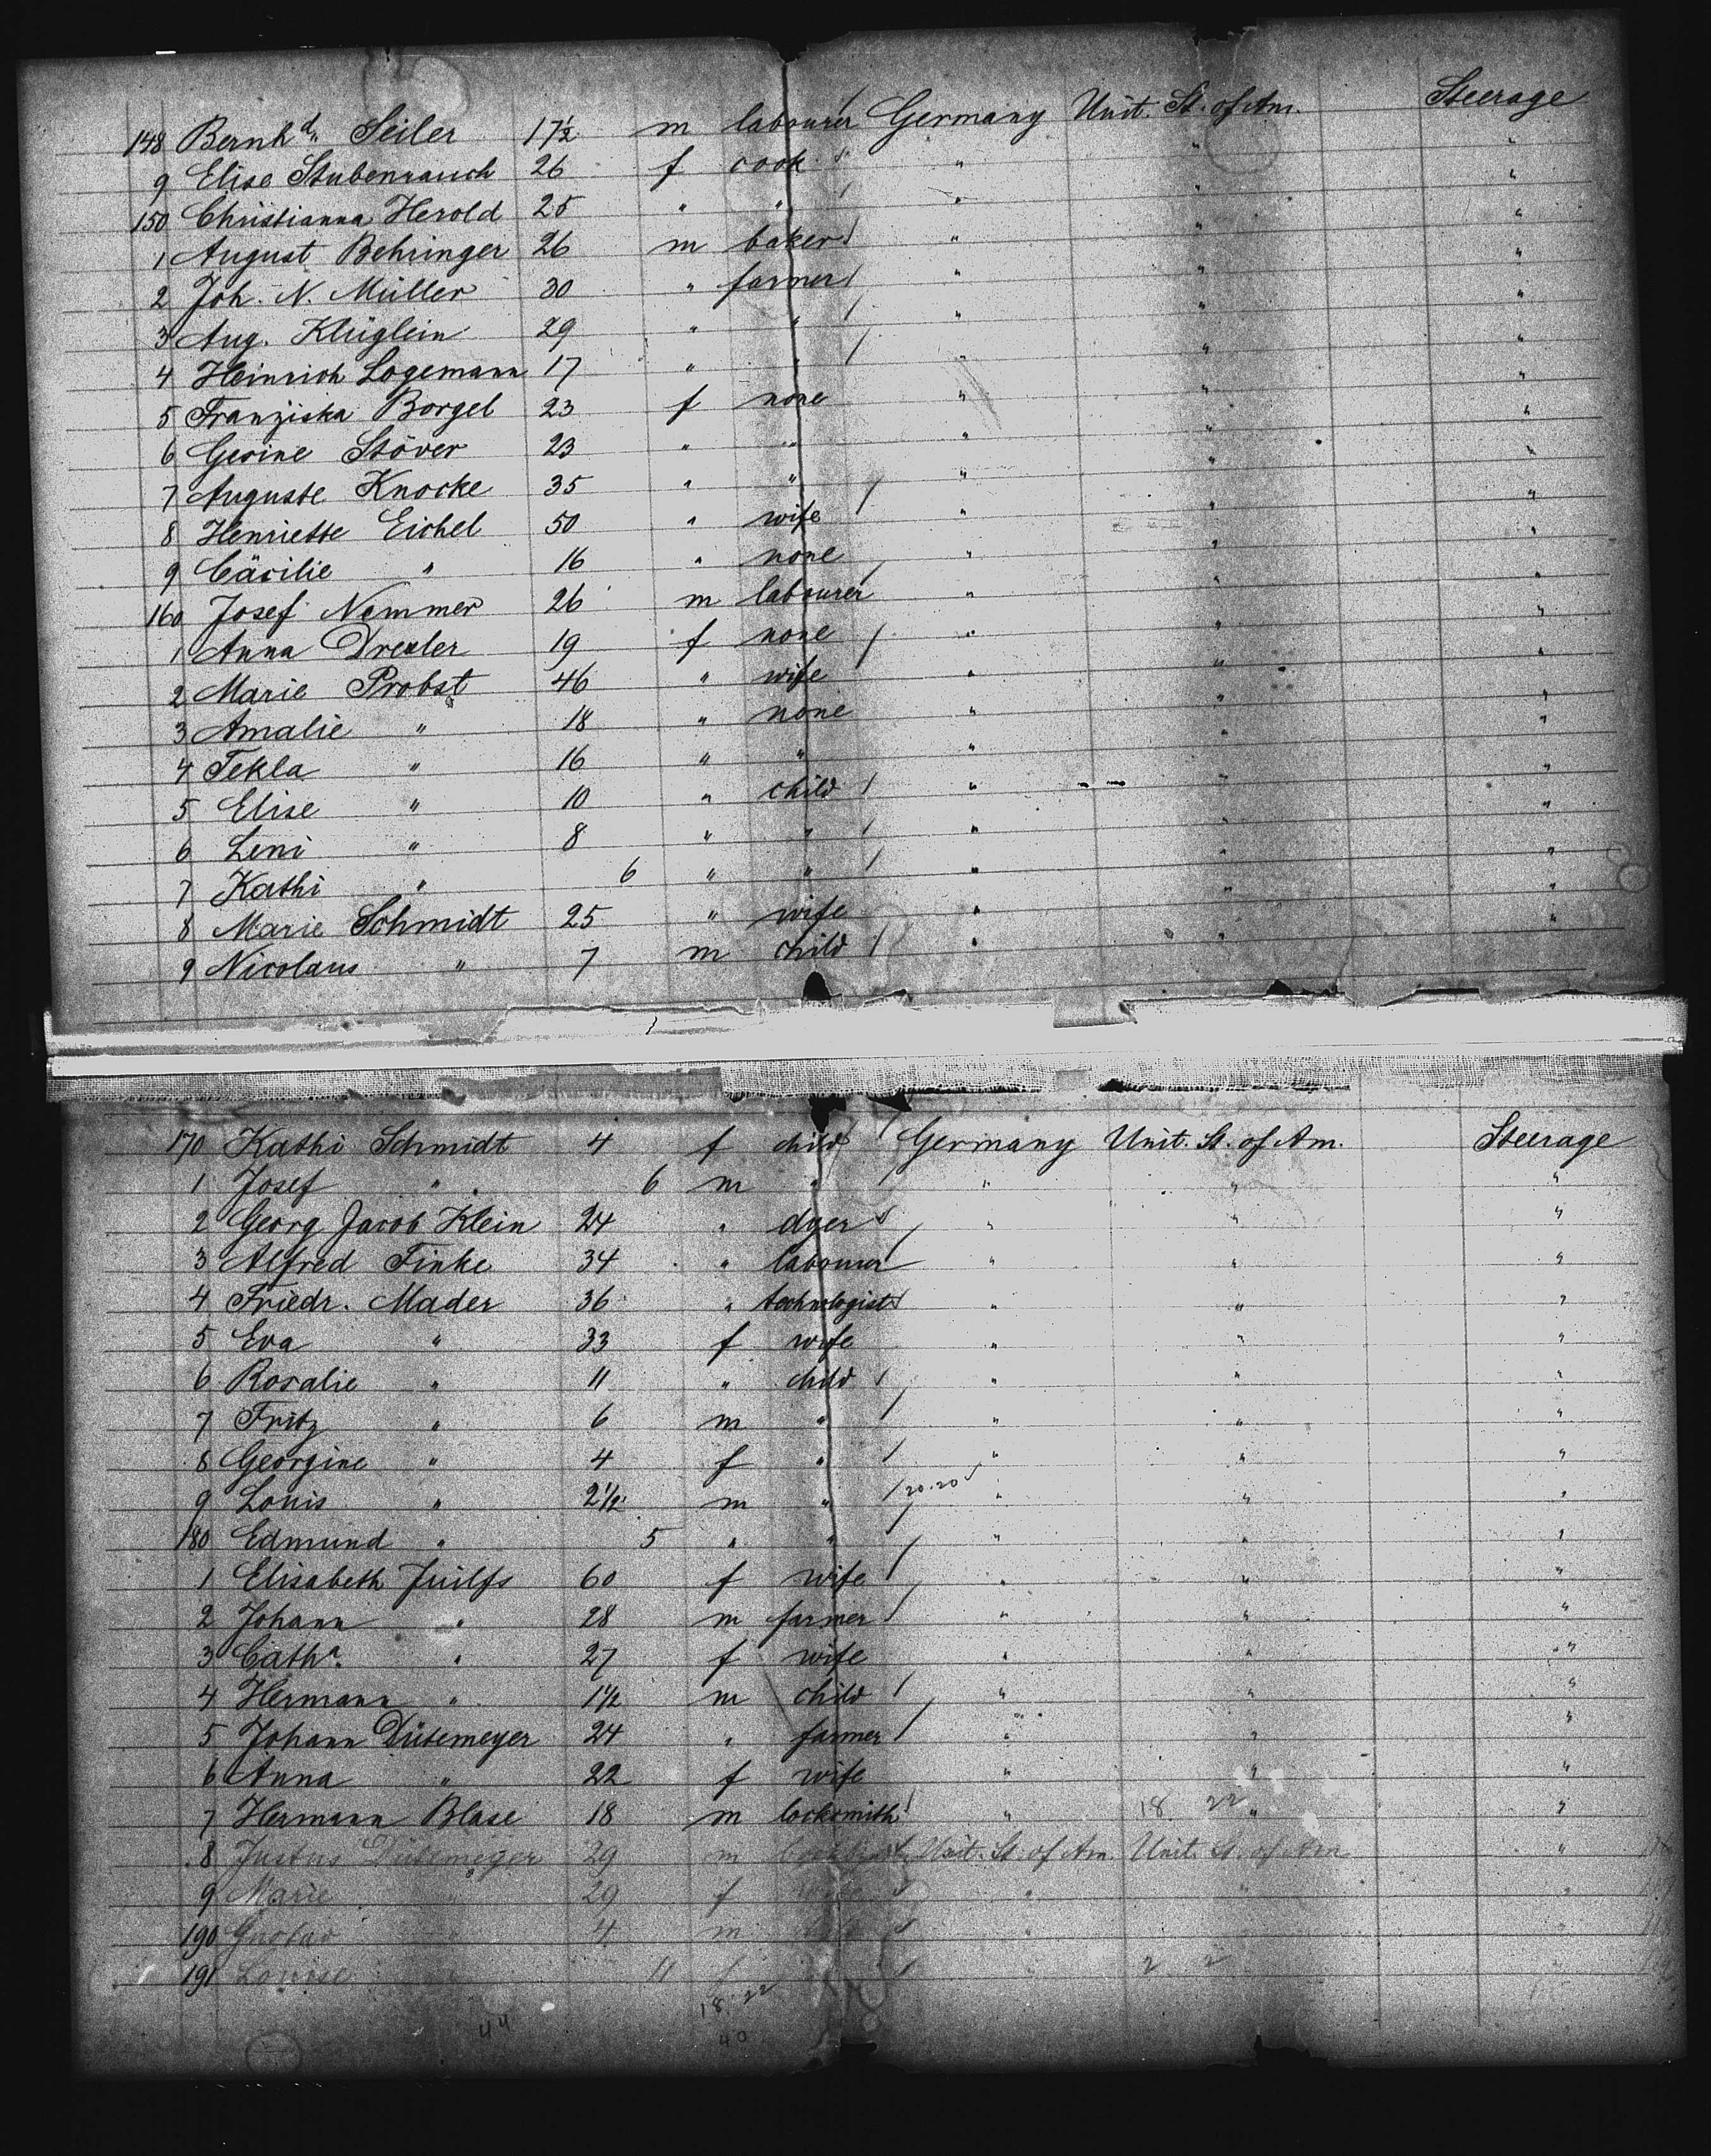 148 Bernhd. Seiler 17½ m labourer Germany Unit. St. of Am. Steerage
9 Elise Stubenrauch 26 f cook " " "
150 Christianna Herold 25 " " " " "
1 August Behringer 26 m baker " " "
2 Joh. N. Müller 30 " farmer " " "
3 Aug. Klüglein 29 " " " " "
4 Heinrich Logemann 17 " " " " "
5 Franziska Borgel 23 f none " " "
6 Gesine Stöver 23 " " " " "
7 Auguste Knocke 35 " " " " "
8 Henriette Eichel 50 " wife " " "
9 Cäcilie " 16 " none " " "
160 Josef Nemmer 26 m labourer " " "
1 Anna Drexler 19 f none " " "
2 Marie Probst 46 " wife " " "
3 Amalie " 18 " none " " "
4 Tekla " 16 " " " " "
5 Elise " 10 " child " " "
6 Leni " 8 " " " " "
7 Kathi " 6 " " " " "
8 Marie Schmidt 25 " wife " " "
9 Nicolaus " 7 m child " " "
170 Kathi Schmidt 4 f child Germany Unit. St. of Am. Steerage
1 Josef " 6 m " " " "
2 Georg Jacob Klein 24 " dyer " " "
3 Alfred Finke 34 " labourer " " "
4 Friedr. Mader 36 " technologist " " "
5 Eva " 33 f wife " " "
6 Rosalie " 11 " child " " "
7 Fritz " 6 m " " " "
8 Georgine " 4 f " " " "
9 Louis " 2½ m " 20.20 " " "
180 Edmund " 5 " " " " "
1 Elisabeth Juilfs 60 f wife " " "
2 Johann " 28 m farmer " " "
3 Cathr. " 27 f wife " " "
4 Hermann " 1½ m child " " "
5 Johann Dütemeyer 24 " farmer " " "
6 Anna " 22 f wife " " "
7 Hermann Blase 18 m locksmith " 18 22 " "
8 Justus Dütemeyer 29 m Unit. St. of Am. Unit. St. of Am. "
9 Marie " 29 f wife " " "
190 Gustav " 4 m child " " "
191 Louise " 11 f " 2 2 "
44 18.22
40